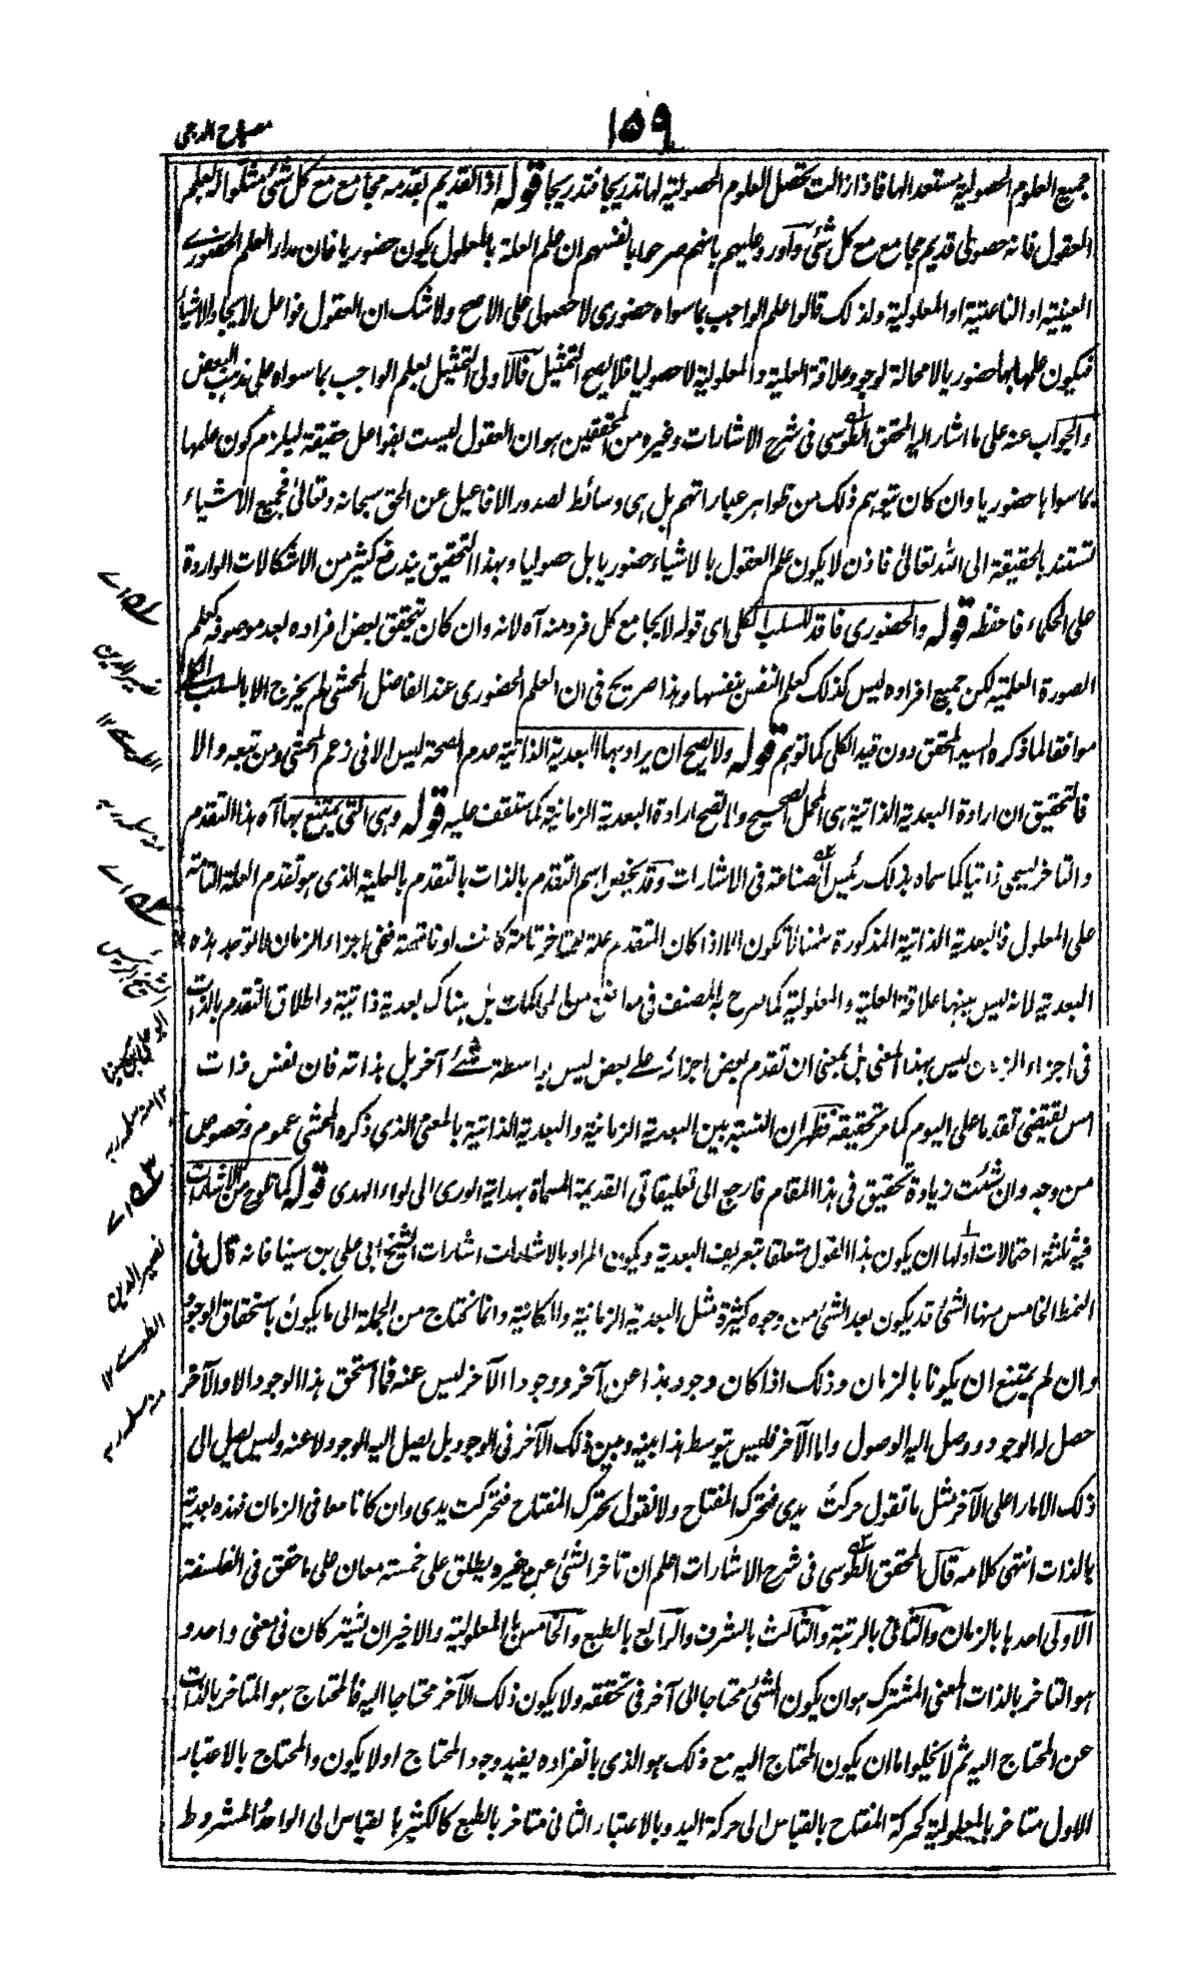 ١٥٩
مصباح الدجى
جميع العلوم الحصولية مستعد الها فاذا زالت تحصل العلوم الحصولية لها تدريجا فتدريجا قوله اذ القديم بقدمه مجامع مع كل شئ مشكوا لعلم
العقول فانه حصولى قديم مجامع مع كل شئ وآورد عليهم بانهم صرحوا بانفسهم ان علم العلة بالمعلول يكون حضوريا فان مدار العلم الحضورى
العينية او الناعتية او المعلولية ولذلك قالوا علم الواجب بما سواه حضورى لا حصولى على الاصح ولا شك ان العقول فواعل لايجاد الاشياء
فيكون علمها بها حضوريا لا محالة لوجود علاقة العلية والمعلولية لا حصوليا فلا يصح التمثيل فالاولى التمثيل بعلم الواجب بما سواه على مذهب البعض
والجواب عنه على ما اشار اليه المحقق الطوسى فى شرح الاشارات وغيره من المحققين هو ان العقول ليست بفواعل حقيقة ليلزم كون علمها
بما سواها حضوريا وان كان يتوهم ذلك من ظواهر عباراتهم بل هى وسائط لصدور الافاعيل عن الحق سبحانه وتعالى فجميع الاشياء
تستند بالحقيقة الى الله تعالى فاذن لا يكون علم العقول بالاشياء حضوريا بل حصوليا وبهذا التحقيق يندفع كثير من الاشكالات الواردة
على الحكماء فاحفظه قوله والحضورى فاقد للسلب الكلى اى قوله لا يجامع كل فرد منه آه لانه وان كان يتحقق بعض افراده بعد موصوفه كعلم
الصورة العلمية لكن جميع افراده ليس كذلك كعلم النفس بنفسها وهذا صريح فى ان العلم الحضورى عند الفاضل المحشى لم يخرج الا بالسلب الكلى
موافقا لما ذكره السيد المحقق دون قيد الكلى كما توهم قوله ولا يصح ان يراد بها البعدية الذاتية عدم الصحة ليس الا فى زعم المحشى ومن تبعه والا
فالتحقيق ان ارادة البعدية الذاتية هى المحل الصحيح ولا تصح ارادة البعدية الزمانية كما ستقف عليه قوله وهى التى يمتنع بها آه هذا التقدم
والتاخر يسمى ذاتيا كما سماه بذلك رئيس الصناعة فى الاشارات وقد يخص اسم التقدم بالذات بالتقدم بالعلية الذى هو تقدم العلة التامة
على المعلول فالبعدية الذاتية المذكورة ههنا لا تكون الا اذا كان المتقدم علة للمتاخر تامة كانت او ناقصة ففى اجزاء الزمان لا توجد هذه
البعدية لانه ليس بينها علاقة العلية والمعلولية كما صرح به المصنف فى مواضع من المحاكمات بل هناك بعدية ذاتية واطلاق التقدم بالذات
فى اجزاء الزمان ليس بهذا المعنى بل بمعنى ان تقدم بعض اجزائه على بعض ليس بواسطة شئ آخر بل بذاته فان نفس ذات
امس يقتضى تقدما على اليوم كما مر تحقيقه فظهر ان النسبة بين البعدية الزمانية والبعدية الذاتية بالمعنى الذى ذكره المحشى عموم وخصوص
من وجه وان شئت زيادة تحقيق فى هذا المقام فارجع الى تعليقاتى القديمة المسماة بهداية الورى الى لواء الهدى قوله كما يلوح من الاشارات
فيه ثلثة احتمالات اولها ان يكون هذا القول متعلقا بتعريف البعدية ويكون المراد بالاشارات اشارات الشيخ ابى على بن سينا فانه قال فى
النمط الخامس منها الشئ قد يكون بعد الشئ من وجوه كثيرة مثل البعدية الزمانية والمكانية وانما نحتاج من الجملة الى ما يكون باستحقاق الوجود
وان لم يمتنع ان يكونا بالزمان وذلك اذا كان وجود هذا عن آخر ووجود الآخر ليس عنه فما استحق هذا الوجود الا والآخر
حصل له الوجود ووصل اليه الوصول واما الآخر فليس يتوسط هذا بينه وبين ذلك الآخر فى الوجود بل يصل اليه الوجود لا عنه وليس يصل الى
ذلك الا مارا على الآخر مثل ما تقول حركت يدى فتحرك المفتاح ولا تقول تحرك المفتاح فتحركت يدى وان كانا معا فى الزمان فهذه بعدية
بالذات انتهى كلامه قال المحقق الطوسى فى شرح الاشارات اعلم ان تاخر الشئ عن غيره يطلق على خمسة معان على ما حقق فى الفلسفة
الاولى احدها بالزمان والثانى بالرتبة والثالث بالشرف والرابع بالطبع والخامس بالمعلولية والاخيران يشتركان فى معنى واحد و
هو التاخر بالذات المعنى المشترك هو ان يكون الشئ محتاجا الى آخر فى تحققه ولا يكون ذلك الآخر محتاجا اليه فالمحتاج هو المتاخر بالذات
عن المحتاج اليه ثم لا يخلوا اما ان يكون المحتاج اليه مع ذلك هو الذى بانفراده يفيد وجود المحتاج او لا يكون والمحتاج بالاعتبار
الاول متاخر بالمعلولية كحركة المفتاح بالقياس الى حركة اليد وبالاعتبار الثانى متاخر بالطبع كالكثير بالقياس الى الواحد والمشروط
نصير الدين
الطوسى ١٢
منه سلمه ربه
الشيخ الرئيس
ابو على بن سينا
١٢ منه سلمه ربه
نصير الدين
الطوسى ١٢
منه سلمه ربه